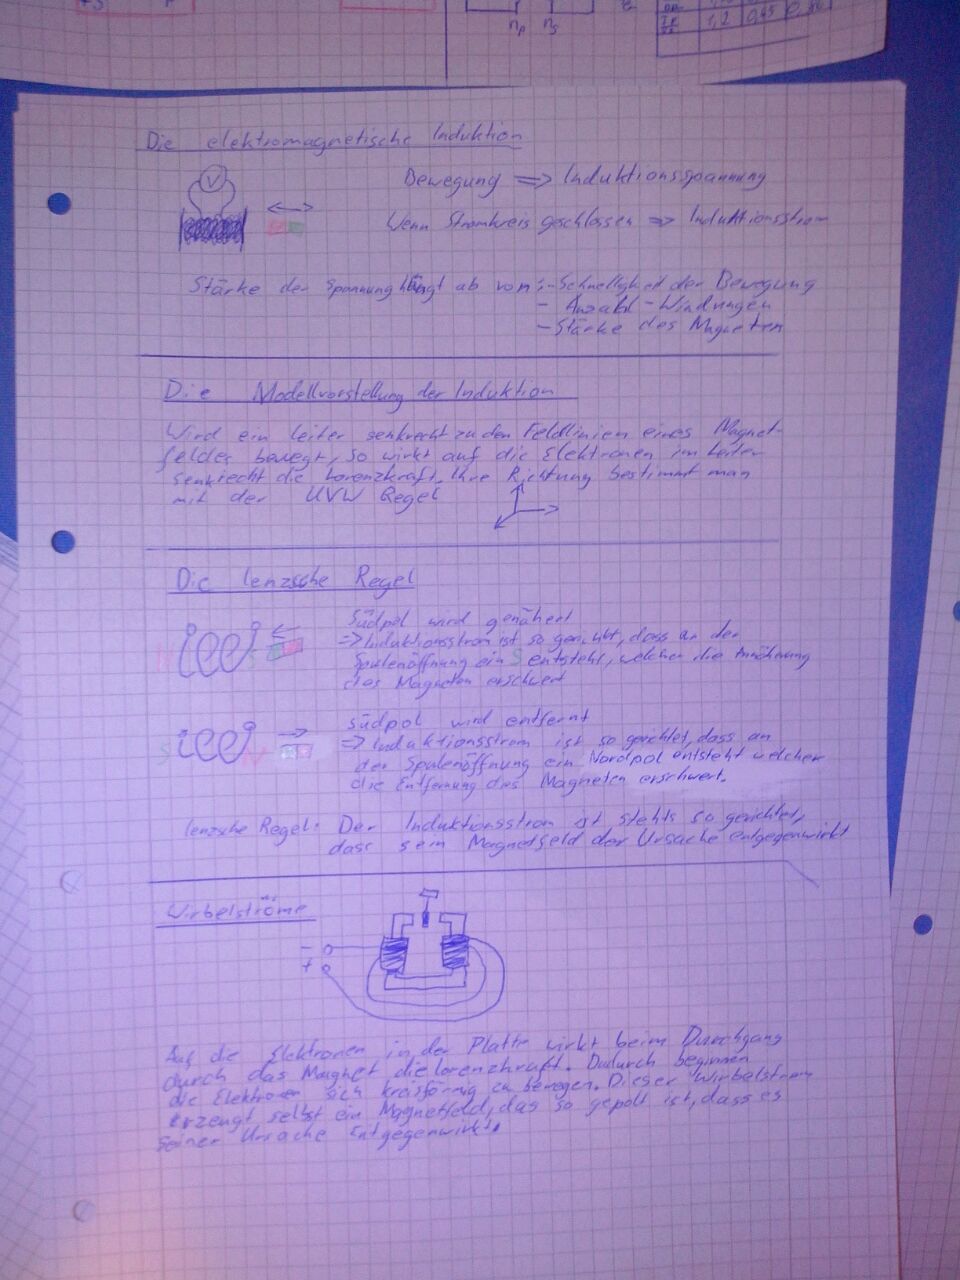 n_p n_s
1,2 0,45
Die elektromagnetische Induktion
V
Bewegung => Induktionsspannung
Wenn Stromkreis geschlossen => Induktionsstrom
Stärke der Spannung hängt ab von: - Schnelligkeit der Bewegung
- Anzahl - Windungen
- Stärke des Magneten
Die Modellvorstellung der Induktion
Wird ein Leiter senkrecht zu den Feldlinien eines Magnet-
feldes bewegt, so wirkt auf die Elektronen im Leiter
senkrecht die Lorenzkraft. Ihre Richtung bestimmt man
mit der UVW Regel
Die lenzsche Regel
Südpol wird genähert
=> Induktionsstrom ist so gerichtet, dass an der
N S Spulenöffnung ein S entsteht, welcher die Annäherung
des Magneten erschwert
Südpol wird entfernt
=> Induktionsstrom ist so gerichtet, dass an
S N der Spulenöffnung ein Nordpol entsteht welcher
die Entfernung des Magneten erschwert.
lenzsche Regel: Der Induktionsstrom ist stehts so gerichtet,
dass sein Magnetfeld der Ursache entgegenwirkt
Wirbelströme
-
+
Auf die Elektronen in der Platte wirkt beim Durchgang
durch das Magnet die lorenzkraft. Dadurch beginnen
die Elektronen sich kreisförmig zu bewegen. Dieser Wirbelstrom
erzeugt selbst ein Magnetfeld, das so gepolt ist, dass es
seiner Ursache Entgegenwirkt.